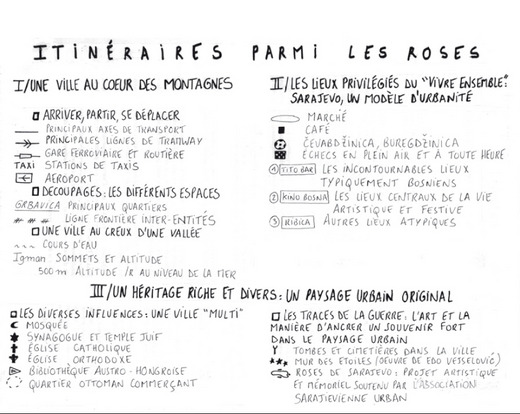 ITINÉRAIRES PARMI LES ROSES
I/UNE VILLE AU COEUR DES MONTAGNES
ARRIVER, PARTIR, SE DÉPLACER
PRINCIPAUX AXES DE TRANSPORT
PRINCIPALES LIGNES DE TRAMWAY
GARE FERROVIAIRE ET ROUTIÈRE
TAXI STATIONS DE TAXIS
AEROPORT
DECOUPAGES: LES DIFFÉRENTS ESPACES
GRBAVICA PRINCIPAUX QUARTIERS
LIGNE FRONTIÈRE INTER-ENTITÉS
UNE VILLE AU CREUX D'UNE VALLÉE
COURS D'EAU
Igman: SOMMETS ET ALTITUDE
500 m ALTITUDE /R AU NIVEAU DE LA MER
II/LES LIEUX PRIVILÉGIÉS DU "VIVRE ENSEMBLE":
SARAJEVO, UN MODÈLE D'URBANITÉ
MARCHÉ
CAFÉ
ĆEVABDŽINICA, BUREGDŽINICA
ÉCHECS EN PLEIN AIR ET À TOUTE HEURE
1 TITO BAR LES INCONTOURNABLES LIEUX
TYPIQUEMENT BOSNIENS
2 KINO BOSNA LES LIEUX CENTRAUX DE LA VIE
ARTISTIQUE ET FESTIVE
3 RIBICA AUTRES LIEUX ATYPIQUES
III/UN HÉRITAGE RICHE ET DIVERS: UN PAYSAGE URBAIN ORIGINAL
LES DIVERSES INFLUENCES: UNE VILLE "MULTI"
MOSQUÉE
SYNAGOGUE ET TEMPLE JUIF
ÉGLISE CATHOLIQUE
ÉGLISE ORTHODOXE
BIBLIOTHÈQUE AUSTRO-HONGROISE
QUARTIER OTTOMAN COMMERÇANT
LES TRACES DE LA GUERRE: L'ART ET LA
MANIÈRE D'ANCRER UN SOUVENIR FORT
DANS LE PAYSAGE URBAIN
TOMBES ET CIMETIÈRES DANS LA VILLE
MUR DES ETOILES (OEUVRE DE EDO VETSELOVIĆ)
ROSES DE SARAJEVO: PROJET ARTISTIQUE
ET MÉMORIEL SOUTENU PAR L'ASSOCIATION
SARAJEVIENNE URBAN